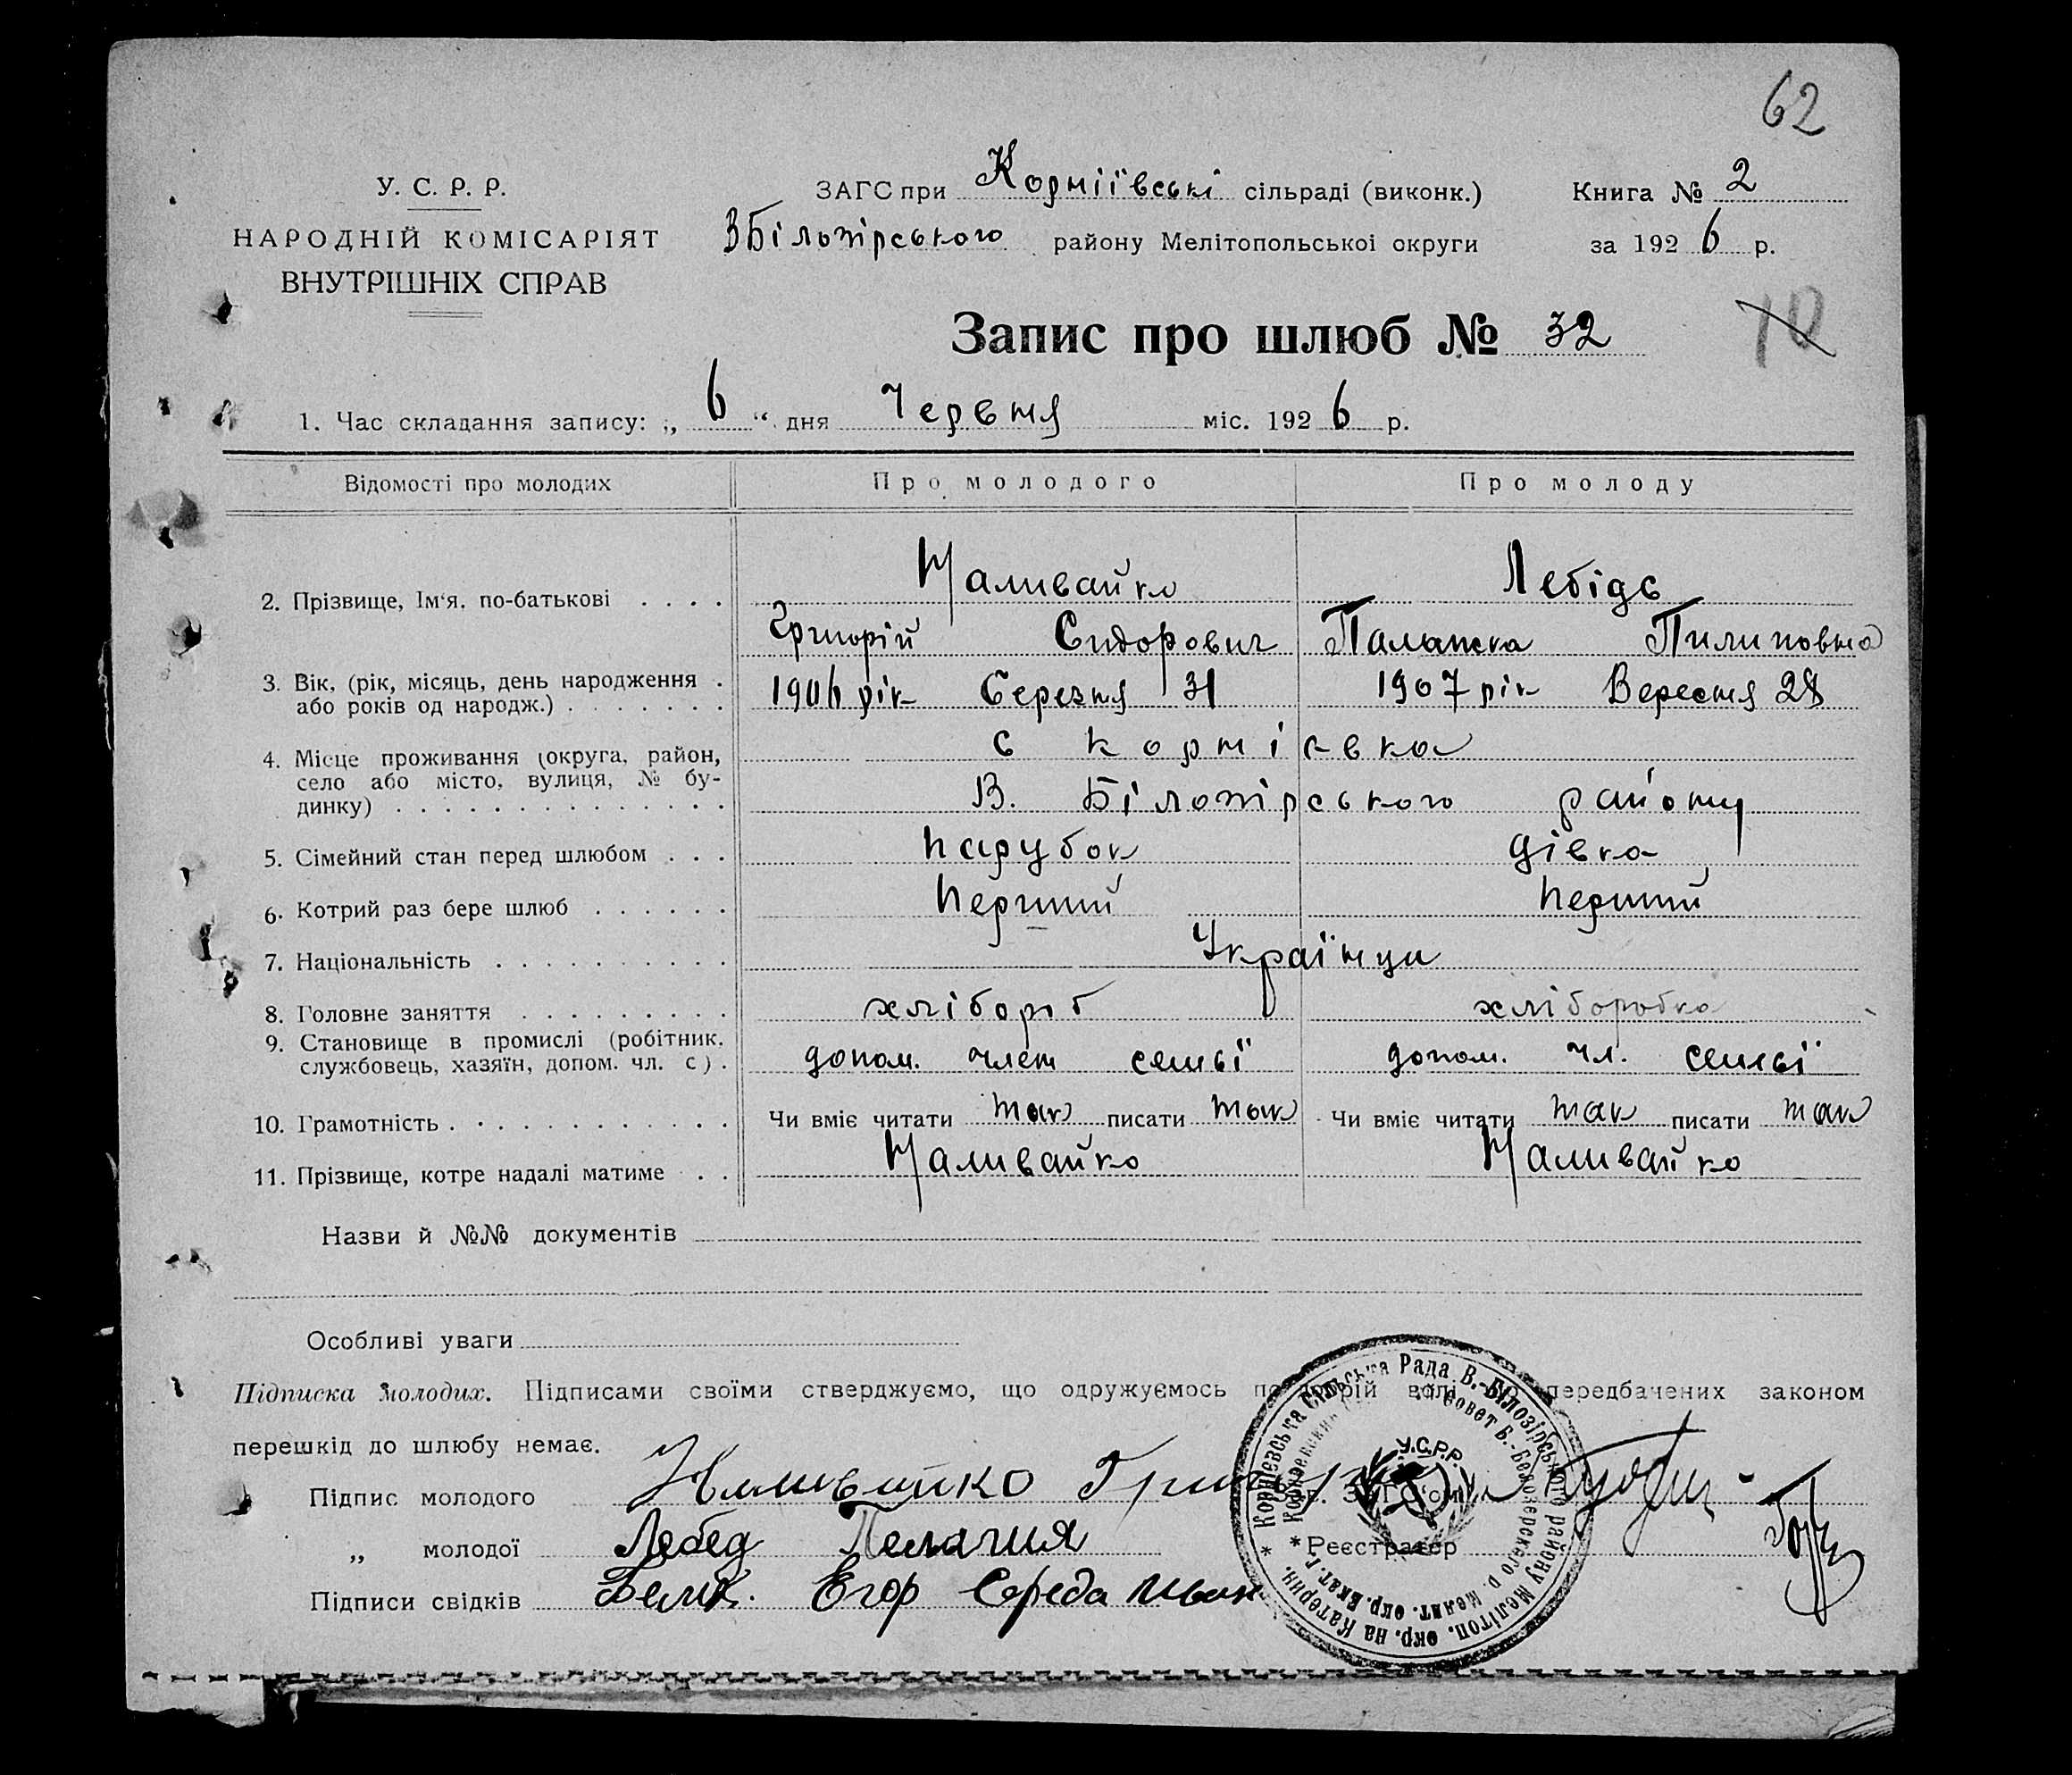 62
У. С. Р. Р.
НАРОДНІЙ КОМІСАРІЯТ
ВНУТРІШНІХ СПРАВ
ЗАГС при Корніївські сільраді (виконк.)
Книга № 2
В Білозірського району Мелітопольської округи
за 1926 р.
Запис про шлюб № 32
10
1. Час складання запису: „ 6 “ дня Червня міс. 1926 р.
Відомості про молодих
Про молодого
Про молоду
2. Прізвище, Ім‘я, по-батькові
Наливайко
Лебідь
Григорій Сидорович
Палажка Пилиповна
3. Вік, (рік, місяць, день народження
або років од народж.)
1906 рік Березня 31
1907 рік Вересня 28
4. Місце проживання (округа, район,
село або місто, вулиця, № бу-
динку)
с Корнієвка
В. Білозірського району
5. Сімейний стан перед шлюбом
парубок
дівка
6. Котрий раз бере шлюб
перший
перший
7. Національність
Українци
8. Головне заняття
хлібороб
хліборобка
9. Становище в промислі (робітник,
службовець, хазяїн, допом. чл. с).
допом. член семьї
допом. чл. семьї
10. Грамотність
Чи вміє читати так писати так
Чи вміє читати так писати так
11. Прізвище, котре надалі матиме
Наливайко
Наливайко
Назви й №№ документів
Особливі уваги
Підписка молодих. Підписами своїми стверджуємо, що одружуємось по добрій волі передбачених законом
перешкід до шлюбу немає.
Підпис молодого Наливайко Григор
„ молодої Лебед Пелагия
Підписи свідків Егор Середа Иван
Зав. ЗАГС‘ом
Реєстратер
Корнієвська Сільська Рада В.-Білозірського району Мелітоп. окр. на Катерин.
Корнеевский Совет Б.-Белозерского р. Мелит. окр. Екат. г.
У.С.Р.Р.